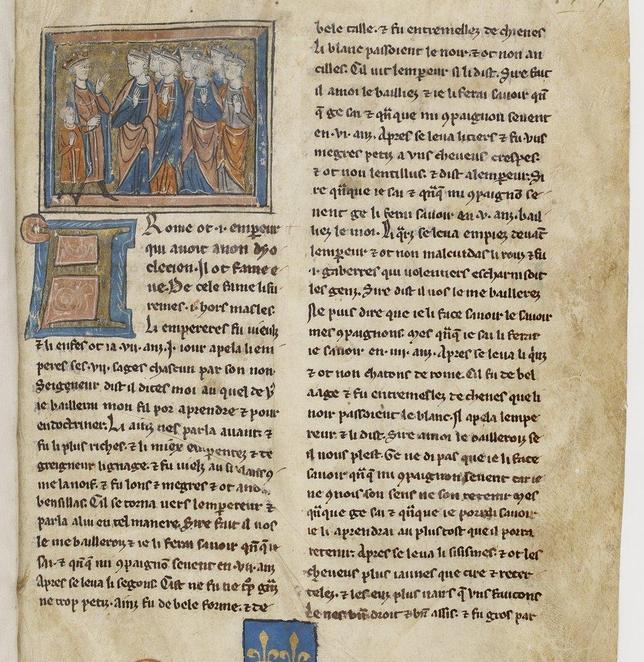 A Rome ot .i. empereur
qui avoit a non dyo
clecien. Il ot fame e
ue. De cele fame li fu
remes .i. hors masles.
Li empereres fu uieuls
⁊ li enfes ot ia .vii. anz. J. iour apela li em
peres ses .vii. sages chascun par son non.
Seigneur dist il dites moi au quel de v
ie baillerai mon fil por aprendre ⁊ pour
endoctriner. Li ainz nes parla auant ⁊
fu li plus riches. ⁊ li miex enparentez ⁊ de
greigneur lignage. ⁊ fu uielz au si blans
me la noif. ⁊ fu lons ⁊ megres ⁊ ot a non
bensillas. Cil se torna uers lempereur ⁊
parla a lui en tel maniere. Sire fait il uos
le me bailleroiz ⁊ ie li ferai sauoir qnq ie
sai. ⁊ qnq mi 9paignon seuent en .vii. anz.
Apres se leua li segons. Cist ne fu ne trop gnz
ne trop petiz. ainz fu de bele forme. ⁊ de
bele taille. ⁊ fu entremellez de chienes
li blanc passoient le noir. ⁊ ot non au
cilles. Cil uit lempeur si li dist. Sire fait
il a moi le bailliez ⁊ ie li ferai sauoir qnq
q ge sai ⁊ qq mi 9paignon seuent
en .vi. anz. Apres se leua li tiers ⁊ fu uns
megres petiz a uns cheueus crespes.
⁊ ot non lentillus. ⁊ dist a lempereur. Si
re qnque ie sai ⁊ qnq mi 9paignon se
uent ge li ferai sauoir en .v. anz. bail
liez le moi. Li qrz se leua en piez deuant
lempereur ⁊ ot non malcuidas li rous ⁊ fu
.i. gaberres qui uolentiers escharnissoit
les genz. Sire dist il uos le me baillerez
Je puis dire que ie li face sauoir le sauoir
mes 9paignons. Mes qnq ie sai li ferai
ie sauoir en .iiii. anz. Apres se leua li qinz
⁊ ot non chatons de rome. Cil fu de bel
aage ⁊ fu entremellez de chenes que li
noir passoient le blanc. Il apela lempe
reur. ⁊ li dist. Sire a moi le bailleroiz se
il uous plest. Ge ne di pas que ie li face
sauoir qnq mi 9paignon seuent car ie
ne quois son sens ne son retenir. Mes
qnque ge sai ⁊ qnque ie porrai sauoir
ie li aprendrai au plus tost que il porra
retenir. Apres se leua li sisismes. ⁊ ot les
cheueus plus iaunes que cire ⁊ recer
celez. ⁊ les eux plus uairs q uns faucons
Le nes bien droit ⁊ bien assis. ⁊ fu gros par